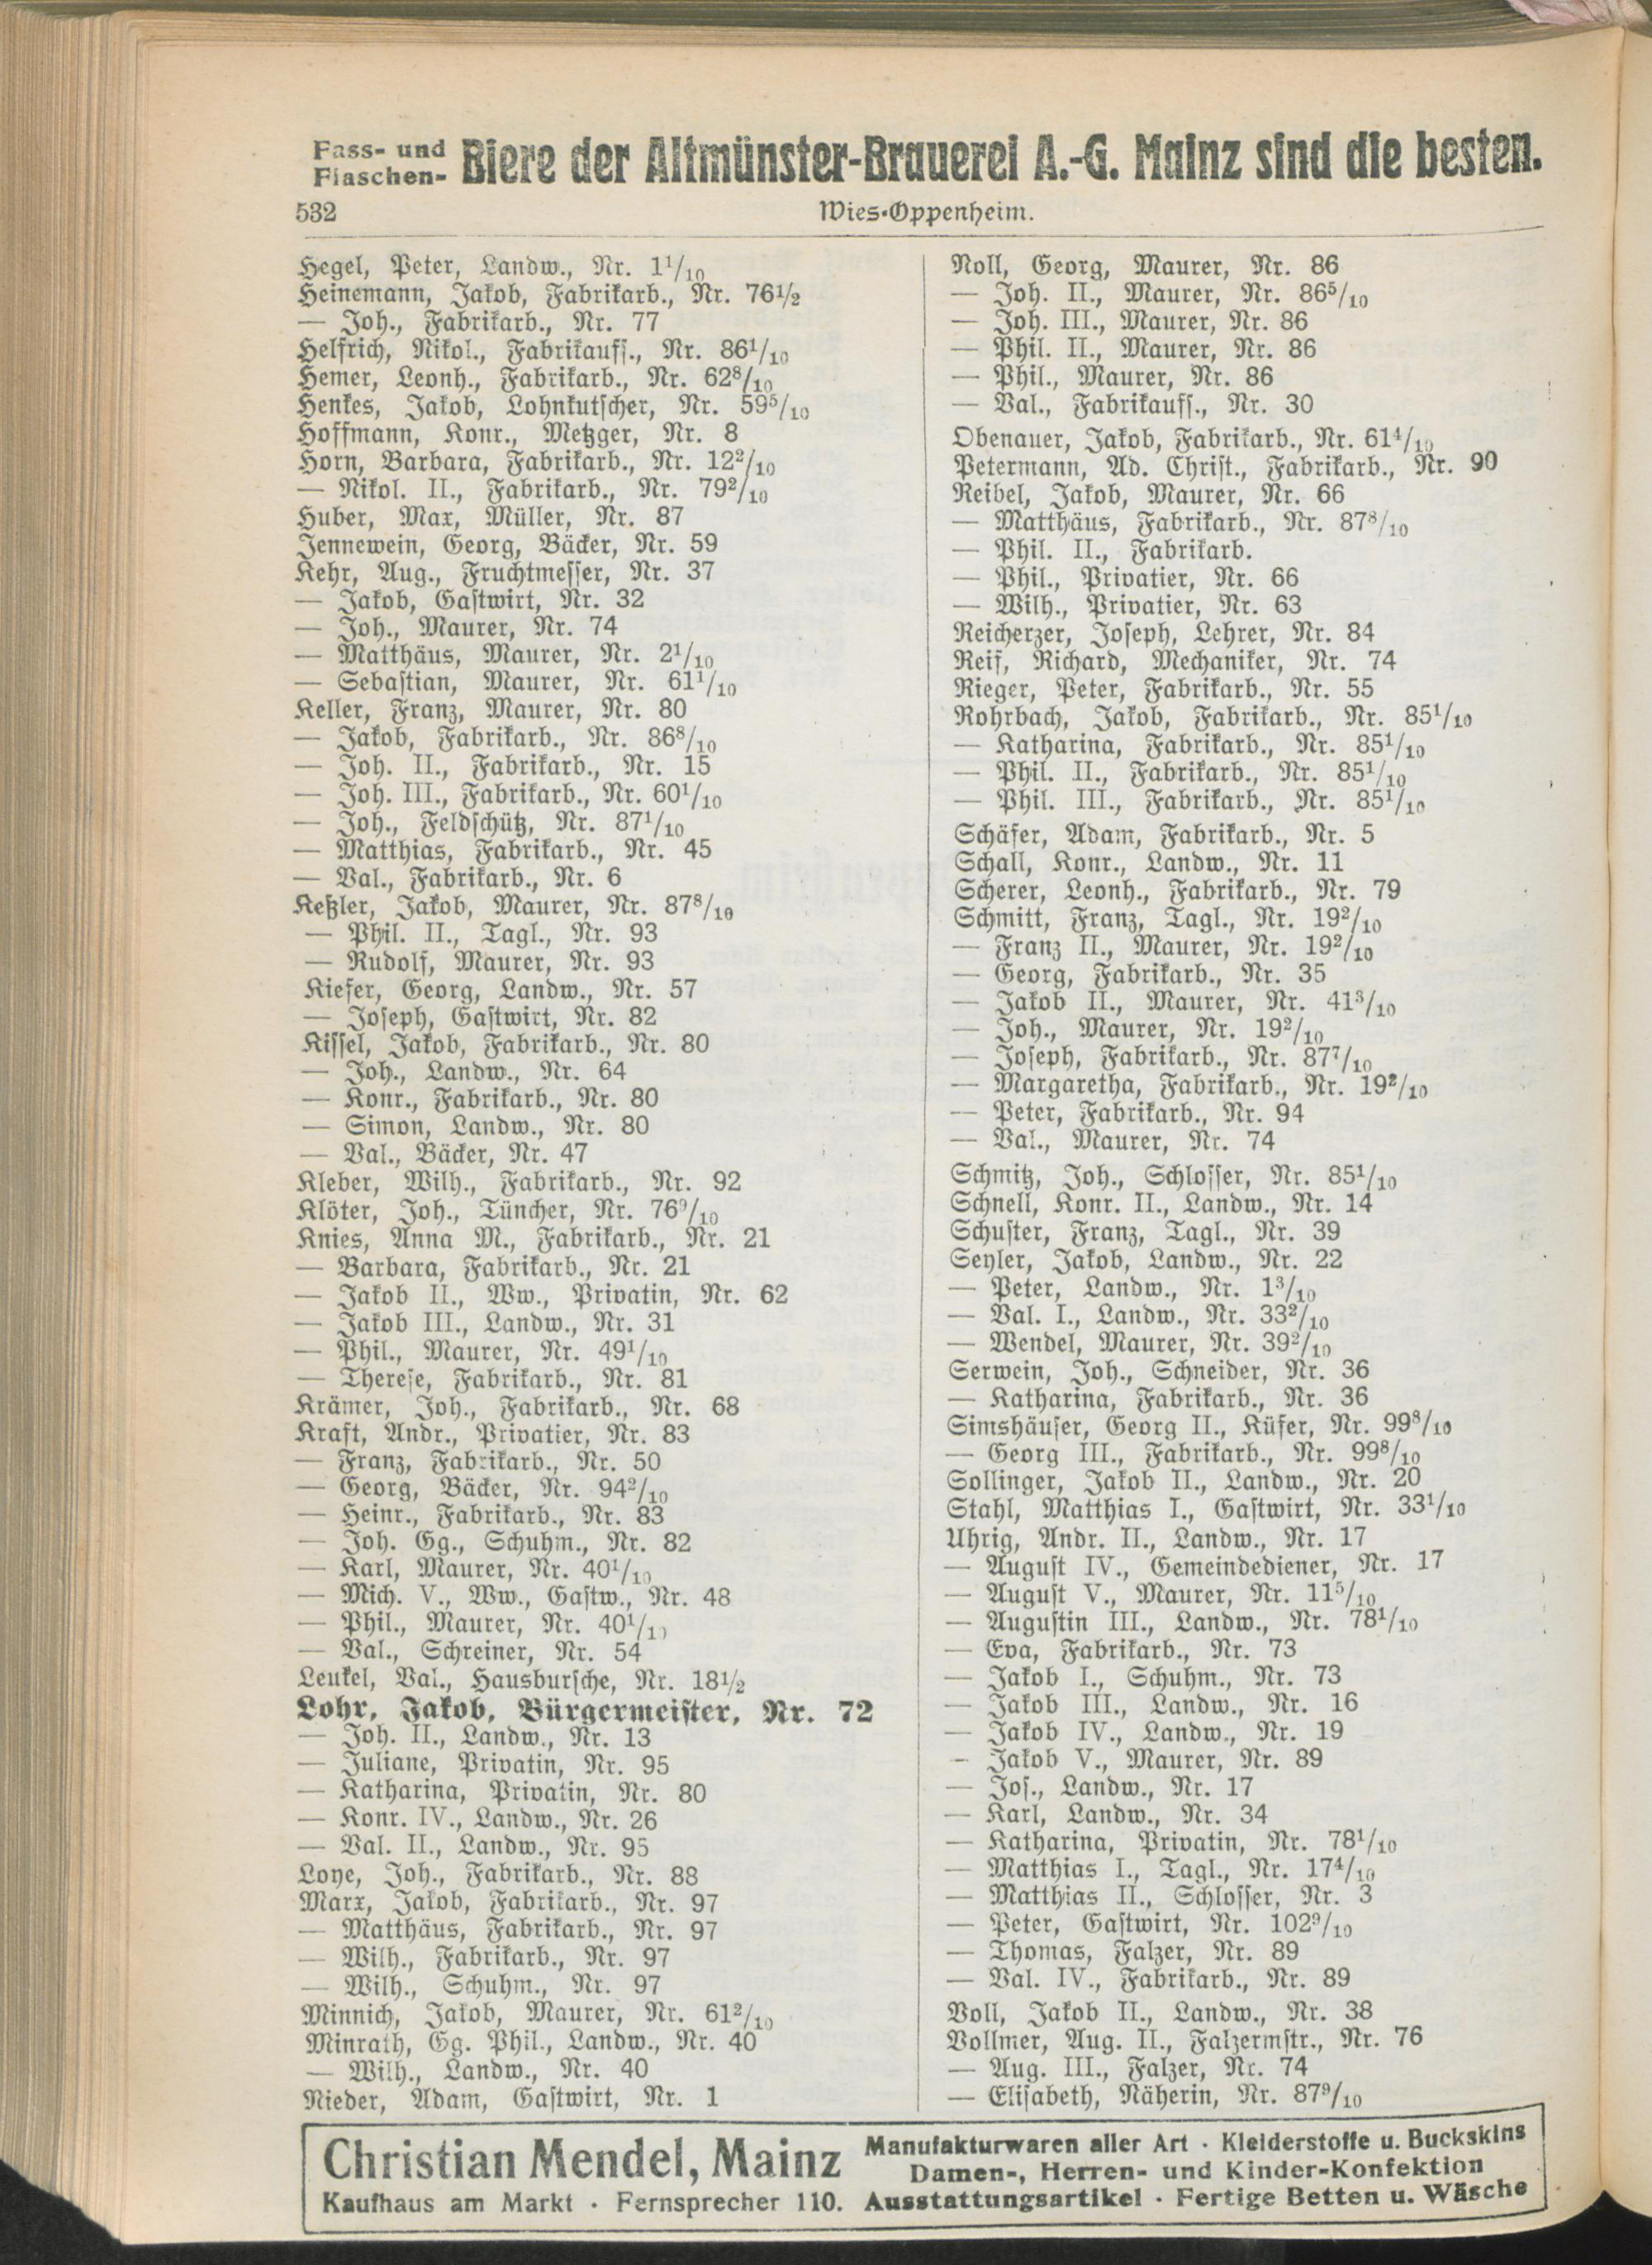 Fass- und
Flaschen- Biere der Altmünster-Brauerei A.-G. Mainz sind die besten.
532
Wies-Oppenheim.
Hegel, Peter, Landw., Nr. 1¹/₁₀
Heinemann, Jakob, Fabrikarb., Nr. 76½
— Joh., Fabrikarb., Nr. 77
Helfrich, Nikol., Fabrikaufs., Nr. 86¹/₁₀
Hemer, Leonh., Fabrikarb., Nr. 62⁸/₁₀
Henkes, Jakob, Lohnkutscher, Nr. 59⁵/₁₀
Hoffmann, Konr., Metzger, Nr. 8
Horn, Barbara, Fabrikarb., Nr. 12²/₁₀
— Nikol. II., Fabrikarb., Nr. 79²/₁₀
Huber, Max, Müller, Nr. 87
Jennewein, Georg, Bäcker, Nr. 59
Kehr, Aug., Fruchtmesser, Nr. 37
— Jakob, Gastwirt, Nr. 32
— Joh., Maurer, Nr. 74
— Matthäus, Maurer, Nr. 2¹/₁₀
— Sebastian, Maurer, Nr. 61¹/₁₀
Keller, Franz, Maurer, Nr. 80
— Jakob, Fabrikarb., Nr. 86⁸/₁₀
— Joh. II., Fabrikarb., Nr. 15
— Joh. III., Fabrikarb., Nr. 60¹/₁₀
— Joh., Feldschütz, Nr. 87¹/₁₀
— Matthias, Fabrikarb., Nr. 45
— Val., Fabrikarb., Nr. 6
Keßler, Jakob, Maurer, Nr. 87⁸/₁₀
— Phil. II., Tagl., Nr. 93
— Rudolf, Maurer, Nr. 93
Kiefer, Georg, Landw., Nr. 57
— Joseph, Gastwirt, Nr. 82
Kissel, Jakob, Fabrikarb., Nr. 80
— Joh., Landw., Nr. 64
— Konr., Fabrikarb., Nr. 80
— Simon, Landw., Nr. 80
— Val., Bäcker, Nr. 47
Kleber, Wilh., Fabrikarb., Nr. 92
Klöter, Joh., Tüncher, Nr. 76⁹/₁₀
Knies, Anna M., Fabrikarb., Nr. 21
— Barbara, Fabrikarb., Nr. 21
— Jakob II., Ww., Privatin, Nr. 62
— Jakob III., Landw., Nr. 31
— Phil., Maurer, Nr. 49¹/₁₀
— Therese, Fabrikarb., Nr. 81
Krämer, Joh., Fabrikarb., Nr. 68
Kraft, Andr., Privatier, Nr. 83
— Franz, Fabrikarb., Nr. 50
— Georg, Bäcker, Nr. 94²/₁₀
— Heinr., Fabrikarb., Nr. 83
— Joh. Gg., Schuhm., Nr. 82
— Karl, Maurer, Nr. 40¹/₁₀
— Mich. V., Ww., Gastw., Nr. 48
— Phil., Maurer, Nr. 40¹/₁₀
— Val., Schreiner, Nr. 54
Leukel, Val., Hausbursche, Nr. 18½
Lohr, Jakob, Bürgermeister, Nr. 72
— Joh. II., Landw., Nr. 13
— Juliane, Privatin, Nr. 95
— Katharina, Privatin, Nr. 80
— Konr. IV., Landw., Nr. 26
— Val. II., Landw., Nr. 95
Loye, Joh., Fabrikarb., Nr. 88
Marx, Jakob, Fabrikarb., Nr. 97
— Matthäus, Fabrikarb., Nr. 97
— Wilh., Fabrikarb., Nr. 97
— Wilh., Schuhm., Nr. 97
Minnich, Jakob, Maurer, Nr. 61²/₁₀
Minrath, Gg. Phil., Landw., Nr. 40
— Wilh., Landw., Nr. 40
Nieder, Adam, Gastwirt, Nr. 1
Noll, Georg, Maurer, Nr. 86
— Joh. II., Maurer, Nr. 86⁵/₁₀
— Joh. III., Maurer, Nr. 86
— Phil. II., Maurer, Nr. 86
— Phil., Maurer, Nr. 86
— Val., Fabrikaufs., Nr. 30
Obenauer, Jakob, Fabrikarb., Nr. 61⁴/₁₀
Petermann, Ad. Christ., Fabrikarb., Nr. 90
Reibel, Jakob, Maurer, Nr. 66
— Matthäus, Fabrikarb., Nr. 87⁸/₁₀
— Phil. II., Fabrikarb.
— Phil., Privatier, Nr. 66
— Wilh., Privatier, Nr. 63
Reicherzer, Joseph, Lehrer, Nr. 84
Reif, Richard, Mechaniker, Nr. 74
Rieger, Peter, Fabrikarb., Nr. 55
Rohrbach, Jakob, Fabrikarb., Nr. 85¹/₁₀
— Katharina, Fabrikarb., Nr. 85¹/₁₀
— Phil. II., Fabrikarb., Nr. 85¹/₁₀
— Phil. III., Fabrikarb., Nr. 85¹/₁₀
Schäfer, Adam, Fabrikarb., Nr. 5
Schall, Konr., Landw., Nr. 11
Scherer, Leonh., Fabrikarb., Nr. 79
Schmitt, Franz, Tagl., Nr. 19²/₁₀
— Franz II., Maurer, Nr. 19²/₁₀
— Georg, Fabrikarb., Nr. 35
— Jakob II., Maurer, Nr. 41³/₁₀
— Joh., Maurer, Nr. 19²/₁₀
— Joseph, Fabrikarb., Nr. 87⁷/₁₀
— Margaretha, Fabrikarb., Nr. 19²/₁₀
— Peter, Fabrikarb., Nr. 94
— Val., Maurer, Nr. 74
Schmitz, Joh., Schlosser, Nr. 85¹/₁₀
Schnell, Konr. II., Landw., Nr. 14
Schuster, Franz, Tagl., Nr. 39
Seyler, Jakob, Landw., Nr. 22
— Peter, Landw., Nr. 1³/₁₀
— Val. I., Landw., Nr. 33²/₁₀
— Wendel, Maurer, Nr. 39²/₁₀
Serwein, Joh., Schneider, Nr. 36
— Katharina, Fabrikarb., Nr. 36
Simshäuser, Georg II., Küfer, Nr. 99⁸/₁₀
— Georg III., Fabrikarb., Nr. 99⁸/₁₀
Sollinger, Jakob II., Landw., Nr. 20
Stahl, Matthias I., Gastwirt, Nr. 33¹/₁₀
Uhrig, Andr. II., Landw., Nr. 17
— August IV., Gemeindediener, Nr. 17
— August V., Maurer, Nr. 11⁵/₁₀
— Augustin III., Landw., Nr. 78¹/₁₀
— Eva, Fabrikarb., Nr. 73
— Jakob I., Schuhm., Nr. 73
— Jakob III., Landw., Nr. 16
— Jakob IV., Landw., Nr. 19
– Jakob V., Maurer, Nr. 89
— Jos., Landw., Nr. 17
— Karl, Landw., Nr. 34
— Katharina, Privatin, Nr. 78¹/₁₀
— Matthias I., Tagl., Nr. 17⁴/₁₀
— Matthias II., Schlosser, Nr. 3
— Peter, Gastwirt, Nr. 102⁹/₁₀
— Thomas, Falzer, Nr. 89
— Val. IV., Fabrikarb., Nr. 89
Voll, Jakob II., Landw., Nr. 38
Vollmer, Aug. II., Falzermstr., Nr. 76
— Aug. III., Falzer, Nr. 74
— Elisabeth, Näherin, Nr. 87⁹/₁₀
Christian Mendel, Mainz
Kaufhaus am Markt · Fernsprecher 110.
Manufakturwaren aller Art · Kleiderstoffe u. Buckskins
Damen-, Herren- und Kinder-Konfektion
Ausstattungsartikel · Fertige Betten u. Wäsche